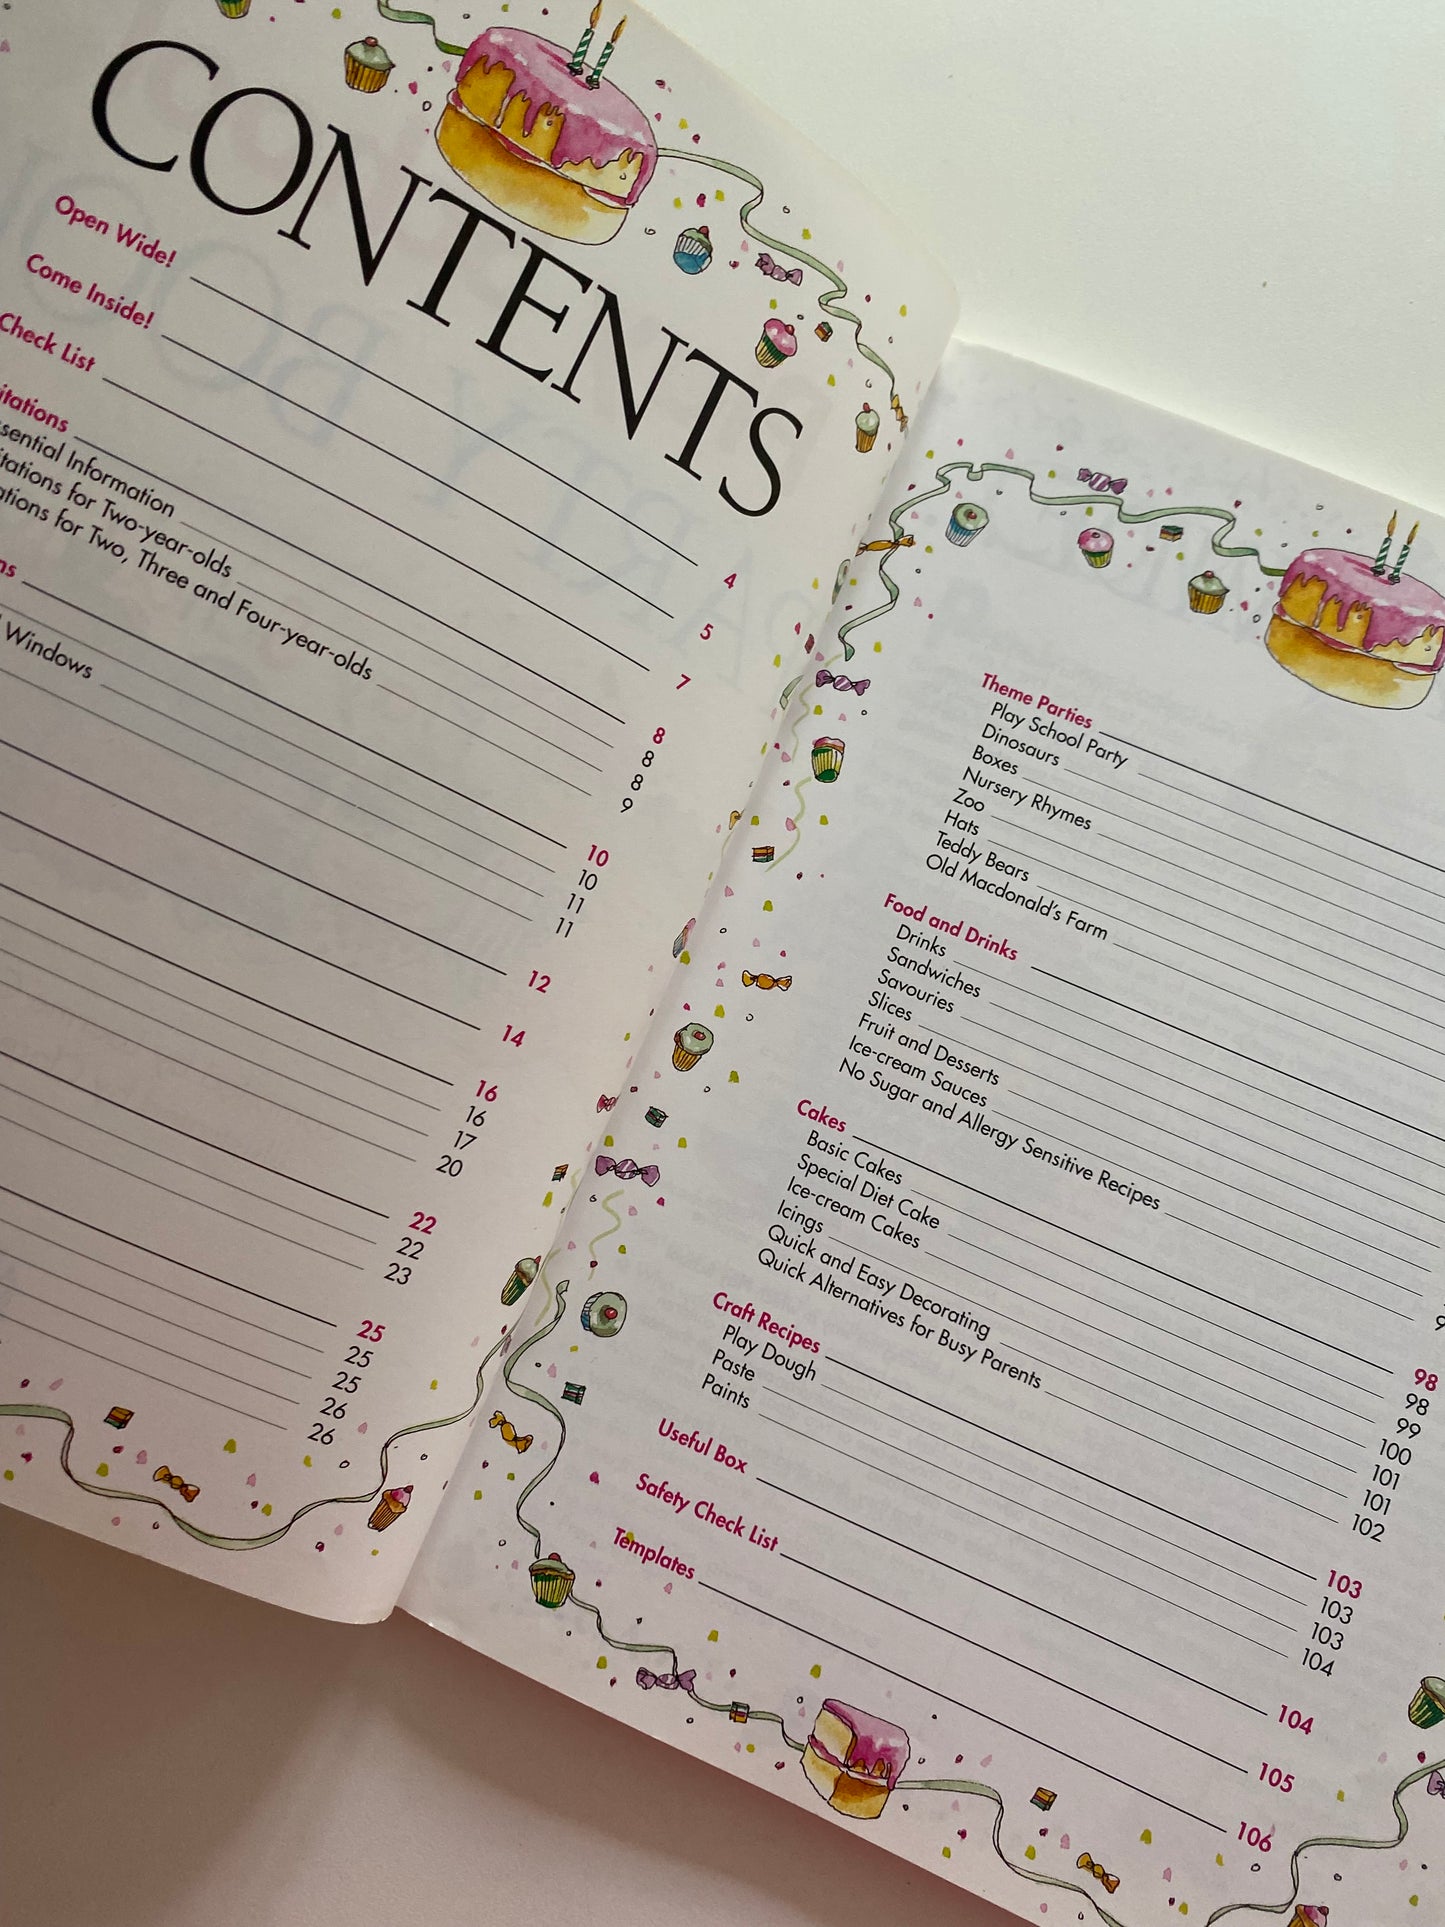 CONTENTS
Open Wide! 4
Come Inside! 5
Check List 7
8
Information 8
for Two-year-olds 8
for Two, Three and Four-year-olds 9
10
10
Windows 11
11
12
14
16
16
17
20
22
22
23
25
25
25
26
26
Theme Parties
Play School Party
Dinosaurs
Boxes
Nursery Rhymes
Zoo
Hats
Teddy Bears
Old Macdonald's Farm
Food and Drinks
Drinks
Sandwiches
Savouries
Slices
Fruit and Desserts
Ice-cream Sauces
No Sugar and Allergy Sensitive Recipes
Cakes 98
Basic Cakes 98
Special Diet Cake 99
Ice-cream Cakes 100
Icings 101
Quick and Easy Decorating 101
Quick Alternatives for Busy Parents 102
Craft Recipes 103
Play Dough 103
Paste 103
Paints 104
Useful Box 104
Safety Check List 105
Templates 106